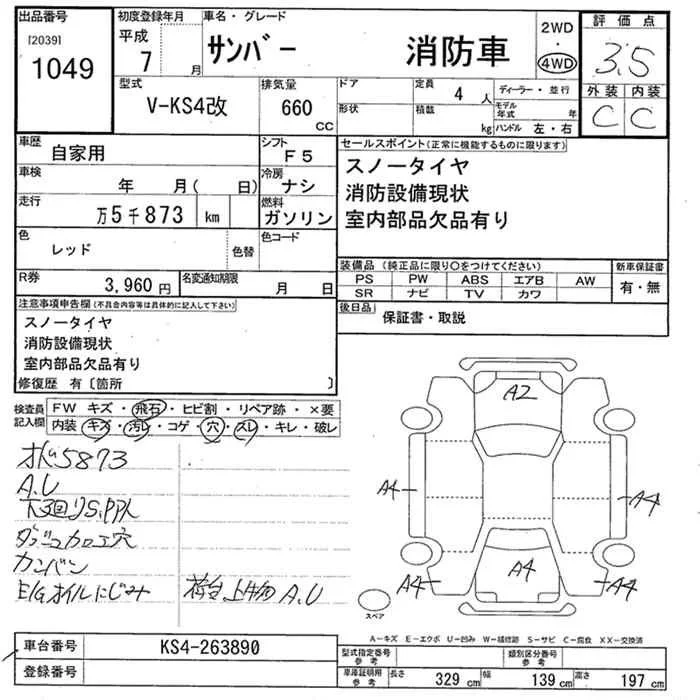 出品番号 初度登録年月 車名・グレード 2WD 評価点
[2039] 平成 サンバー 消防車 ・ 3.5
1049 7 月 4WD 外装 内装
型式 排気量 ドア 定員 4 人 ディーラー・並行 C C
V-KS4改 660 CC 形状 積載 kg モデル年式 年
ハンドル 左・右
車歴 自家用 シフト F5 セールスポイント(正常に機能するものに限ります)
車検 年 月( 日) 冷房 ナシ スノータイヤ
走行 万5千873 km 燃料 ガソリン 消防設備現状
色 レッド 色替 色コード 室内部品欠品有り
R券 3,960円 名変通知期限 月 日 装備品(純正品に限り○をつけてください) 新車保証書
PS PW ABS エアB AW 有・無
SR ナビ TV カワ
注意事項申告欄(不具合内容等は具体的に記入して下さい) 後日品 保証書・取説
スノータイヤ
消防設備現状
室内部品欠品有り
修復歴 有〔箇所 〕
検査員記入欄 FW キズ・飛石・ヒビ割・リペア跡・×要
内装 キズ・汚レ・コゲ・穴・スレ・キレ・破レ
5873
A.U
下廻りS,
ダッシュカロエ穴
カンバン
E/Gオイルにじみ 荷台上物 A.U
A2
A4 A4
A4 A4 A4
スペア
A-キズ E-エクボ U-凹み W-補修跡 S-サビ C-腐食 XX-交換済
車台番号 KS4-263890 型式指定番号 参考 類別区分番号 参考
登録番号 車庫証明用 参考 長さ 329 cm 幅 139 cm 高さ 197 cm